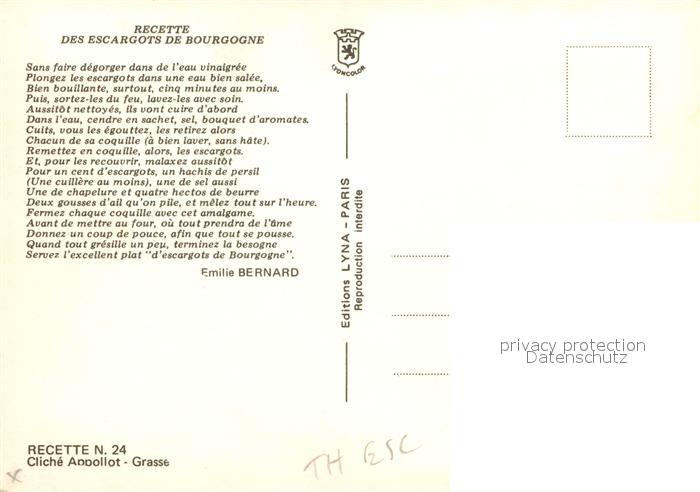 RECETTE
DES ESCARGOTS DE BOURGOGNE
Sans faire dégorger dans de l'eau vinaigrée
Plongez les escargots dans une eau bien salée,
Bien bouillante, surtout, cinq minutes au moins.
Puis, sortez-les du feu, lavez-les avec soin.
Aussitôt nettoyés, ils vont cuire d'abord
Dans l'eau, cendre en sachet, sel, bouquet d'aromates.
Cuits, vous les égouttez, les retirez alors
Chacun de sa coquille (à bien laver, sans hâte).
Remettez en coquille, alors, les escargots.
Et, pour les recouvrir, malaxez aussitôt
Pour un cent d'escargots, un hachis de persil
(Une cuillère au moins), une de sel aussi
Une de chapelure et quatre hectos de beurre
Deux gousses d'ail qu'on pile, et mêlez tout sur l'heure.
Fermez chaque coquille avec cet amalgame.
Avant de mettre au four, où tout prendra de l'âme
Donnez un coup de pouce, afin que tout se pousse.
Quand tout grésille un peu, terminez la besogne
Servez l'excellent plat "d'escargots de Bourgogne".
Emilie BERNARD
RECETTE N. 24
Cliché Appollot - Grasse
LYONCOLOR
Editions LYNA - PARIS
Reproduction interdite
TH ESC
privacy protection
Datenschutz